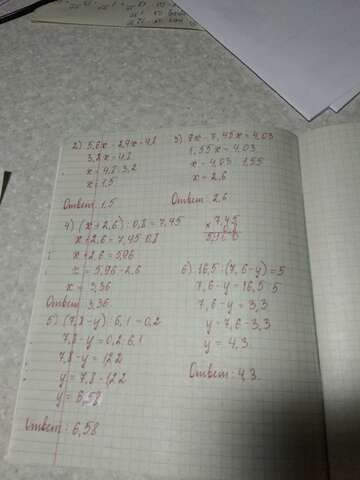 2) 5,6x - 2,4x = 4,8
3,2x = 4,8
x = 4,8 : 3,2
x = 1,5
Ответ: 1,5
3) 7x - 5,45x = 4,03
1,55x = 4,03
x = 4,03 : 1,55
x = 2,6
Ответ: 2,6
4) (x + 2,6) : 0,8 = 7,45
x + 2,6 = 7,45 · 0,8
x + 2,6 = 5,96
x = 5,96 - 2,6
x = 3,36
Ответ: 3,36
× 7,45
0,8
5,960
5) (7,8 - y) : 6,1 = 0,2
7,8 - y = 0,2 · 6,1
7,8 - y = 1,22
y = 7,8 - 1,22
y = 6,58
Ответ: 6,58
6) 16,5 : (7,6 - y) = 5
7,6 - y = 16,5 : 5
7,6 - y = 3,3
y = 7,6 - 3,3
y = 4,3
Ответ: 4,3.